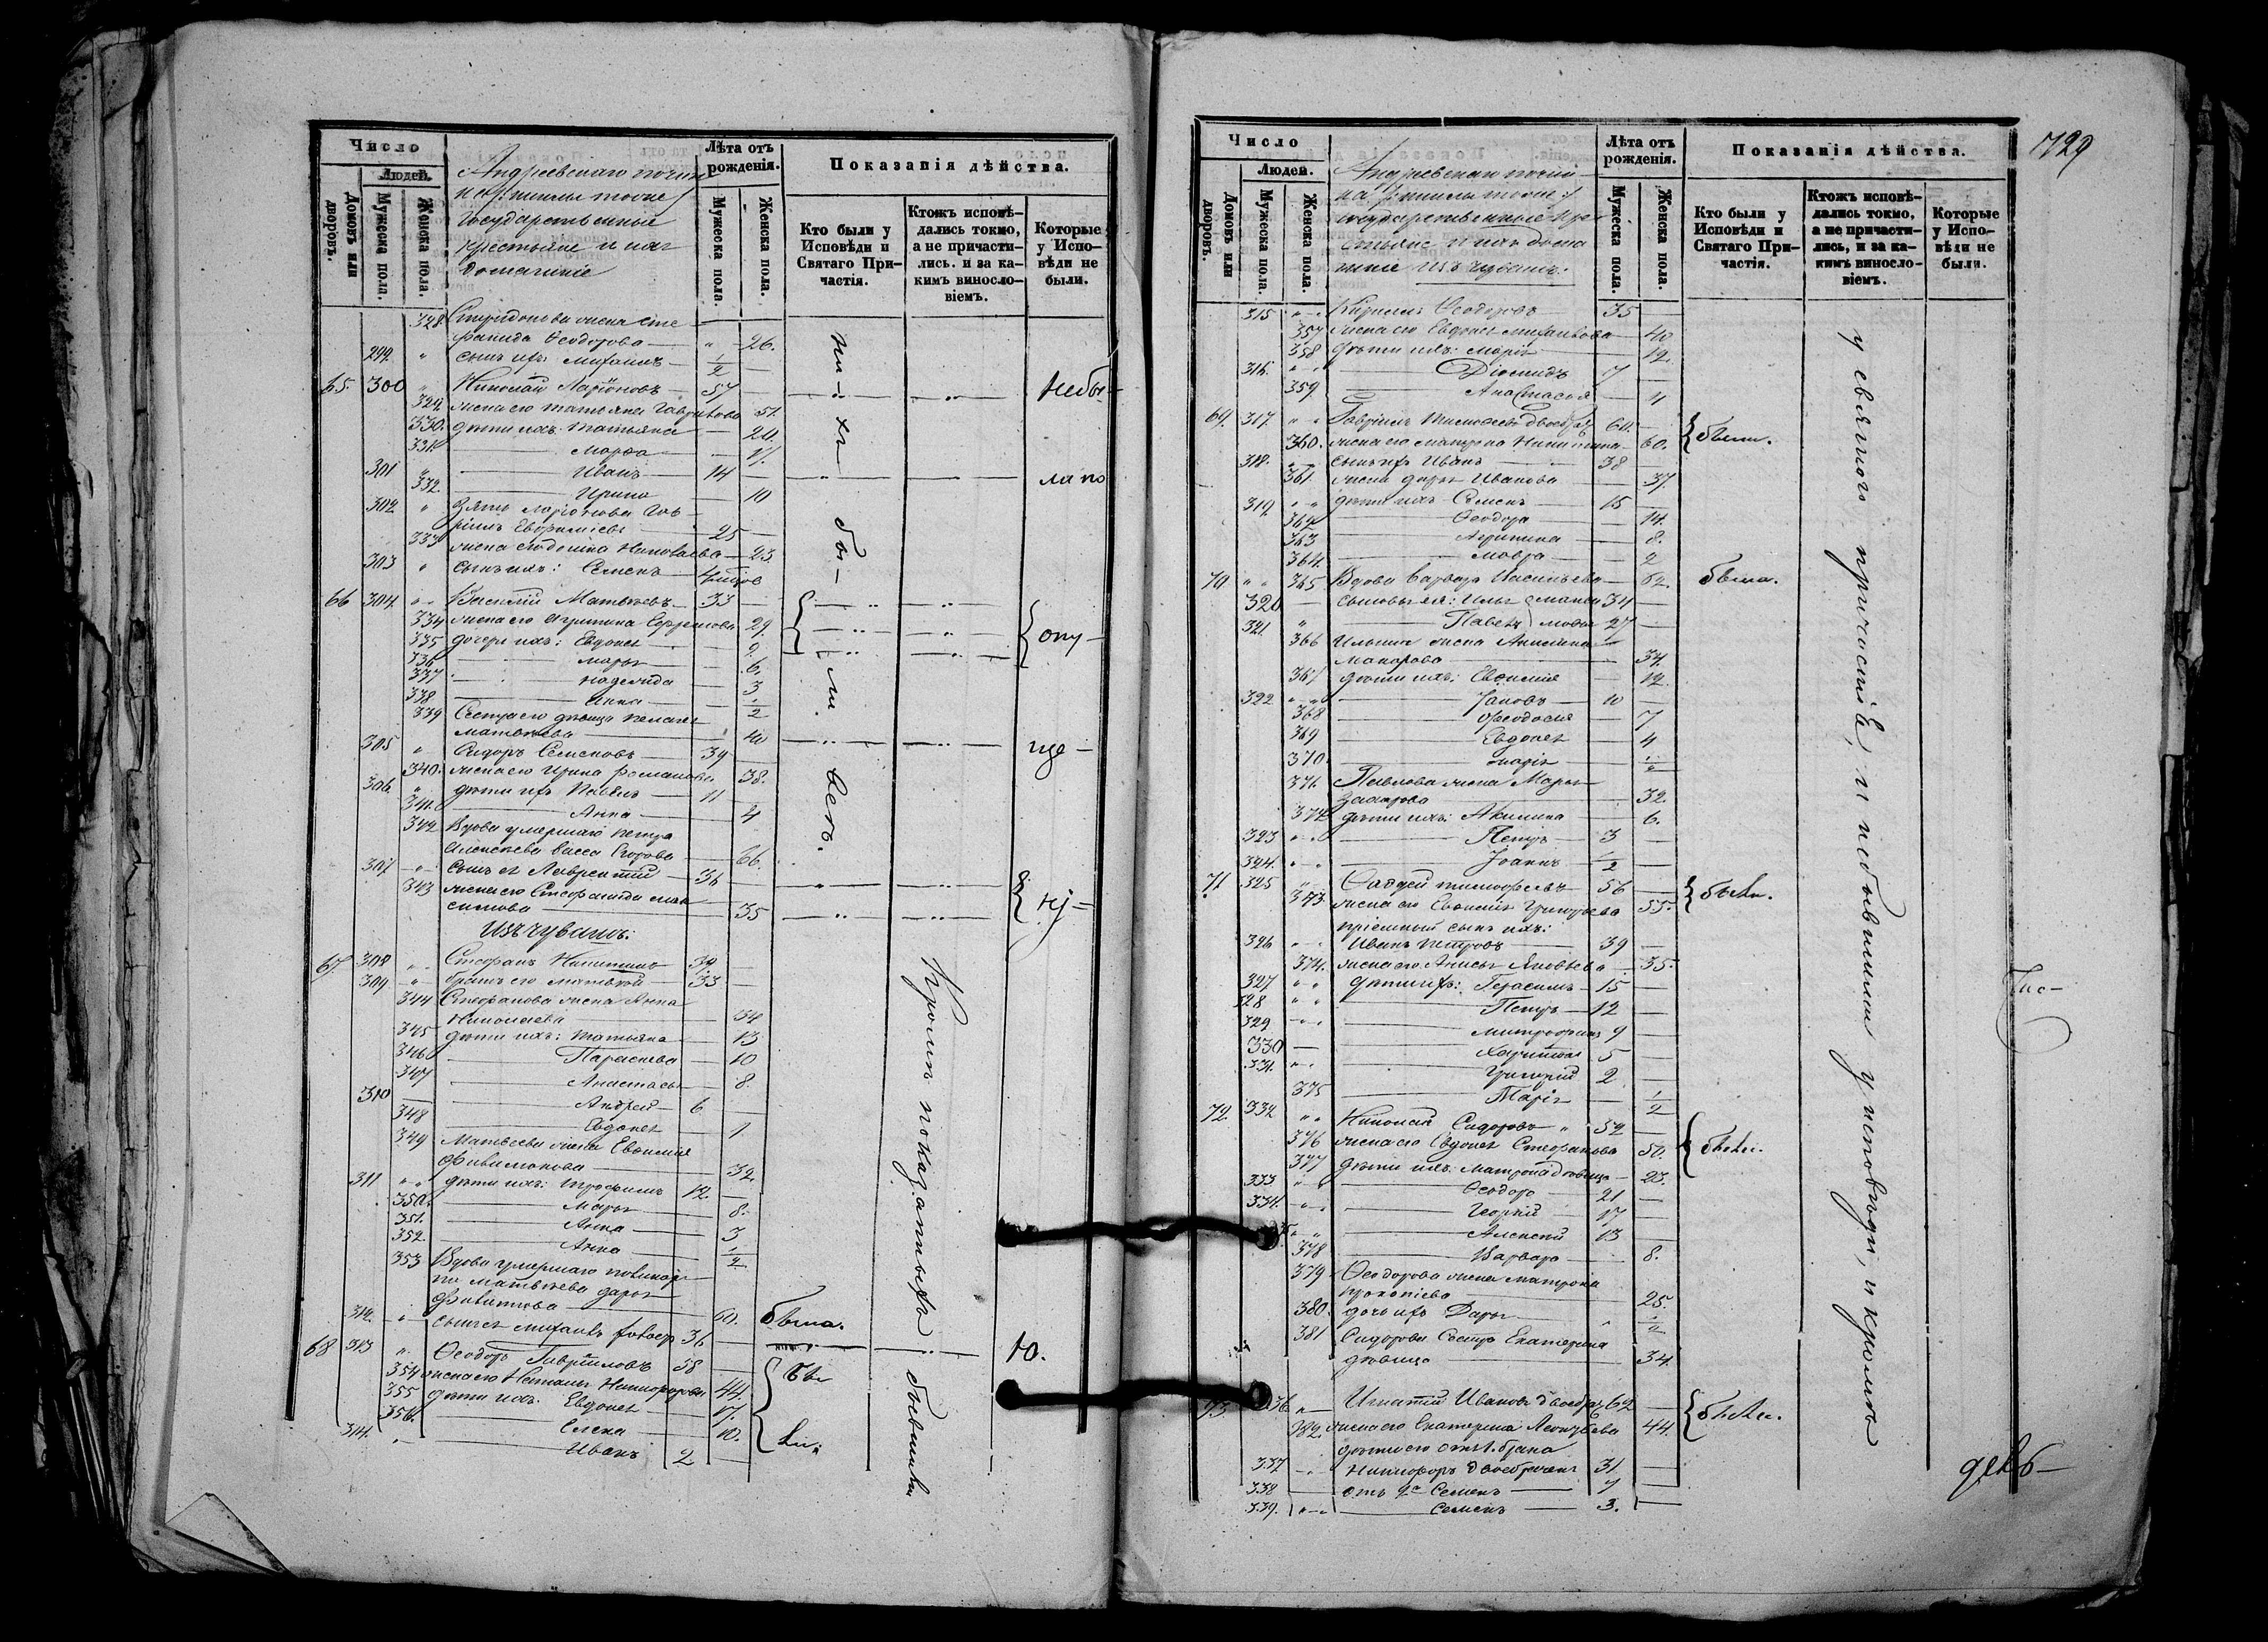 Число
Людей.
Домовъ или дворовъ.
Мужеска пола.
Женска пола.
Андреевскаго почин
ка /: тожъ /
Государственные
крестьяне и ихъ
домашніе
Лѣта отъ рожденія.
Мужеска пола.
Женска пола.
Показанія дѣйства.
Кто были у Исповѣди и Святаго Причастія.
Ктожъ исповѣдались токмо, а не причастились. и за какимъ винословіемъ.
Которые у Исповѣди не были.
328. Спиридонова жена Сте-
фанида Ѳеодорова — „ 26.
299 „ сынъ ихъ Михаилъ — 1/2
65 300 „ Николай Ларіоновъ — 57 — небы-
329 жена его Татьяна Гаврилова 51.
330. дѣти ихъ: Татьяна — 20.
331. Марѳа — 17.
301 „ Иванъ — 14 — ла по
332 Ирина — 10
302 „ Зять Ларіонова Гав-
ріилъ Евфиміевъ — 25
333 жена его Николаева — 23.
303 „ сынъ ихъ: Семенъ
66 304. „ Василій Матвѣевъ — 33
334 жена его Агрипина Ефремова 29. опу-
335 дочери ихъ: Евдокія — 9.
336 Марья — 6.
337 Надежда — 3
338 Анна — 1/2
339 Сестра его дѣвица Пелагея
Матвѣева — 40
305 „ Сидоръ Семеновъ — 39 ще-
340. жена его Ирина Романова 38.
306. „ дѣти ихъ Павелъ — 11
341. Анна — 4
342 Вдова умершаго Петра
Алексѣева Васса Егорова — 66.
307 „ сынъ ея Лаврентій — 36
343 жена его Стефанида Мак
симова — 35 ні=
Изъ чувашъ:
67. 308 „ Стефанъ Никитинъ 39
309 „ братъ его Матвѣй — 33
344 Стефанова жена Анна
Николаева — 34
345 дѣти ихъ: Татьяна — 13
346 Параскева — 10
347 Анастасья — 8.
310 Андрей — 6
348 Евдокія — 1
349 Матвеева жена Евѳимія
Филимонова — 32.
311 „ дѣти ихъ: Трофимъ 12.
350. Марья — 8.
351. Анна — 3
352 Анна — 1/2
353 Вдова умершаго
Матвѣева Дарья
Филипова — 60. была.
312. „ сынъ ея Михаилъ 36
68 313 „ Ѳеодоръ Гавриловъ 58 — ю.
354 жена его Наталья Никифорова 44 бы
355 дѣти ихъ: Евдокія 17.
356. Елена 10. ли.
314. „ Иванъ 2
ни-хъ бы-ли. веть.
Кромѣ показанныхъ бывшихъ
1729
Число
Людей.
Домовъ или дворовъ.
Мужеска пола.
Женска пола.
Андреевскаго почин
ка /: тожъ :/
государственные кре
стьяне и ихъ дома
шніе изъ чувашъ.
Лѣта отъ рожденія.
Мужеска пола.
Женска пола.
Показанія дѣйства.
Кто были у Исповѣди и Святаго Причастія.
Ктожъ исповѣдались токмо, а не причастились, и за какимъ винословіемъ.
Которые у Исповѣди не были.
315 „ Кирилъ Ѳеодоровъ 35
357 жена его Евдокія Михайлова — 40
358 дѣти ихъ: Марія — 12.
316. Діомидъ 7
359 Анастасія — 4
69. 317 „ Гавріилъ Тимоѳеевъ двоебр. 60. были.
360. жена его Матрона Никитина — 60.
318. сынъ ихъ Иванъ — 38
361 жена Дарья Иванова — 37.
319 „ дѣти ихъ Семенъ — 15
362 Ѳеодора — 14.
363 Агрипина — 8.
364. Мавра — 2
70 „ 365 Вдова Варвара Васильева — 62. была.
320 сыновья ея: Илья 34
321. „ Павелъ 27
366 Ильина жена Акилина
Макарова — 34.
367 дѣти ихъ: Евѳимія — 12.
322 „ Іаковъ — 10
368 Ѳеодосія — 7
369 Евдокія — 4
370 Марія
371. Павлова жена Марья
Захарова — 32.
372 дѣти ихъ: Акилина — 6.
323 „ Петръ — 3
324. „ Іоаннъ — 1/2
71 325 Ѳаддей Тимоѳеевъ 56 были.
373 жена его Евѳимія Григорьева 55.
пріемный сынъ ихъ:
326 „ Иванъ Петровъ — 39
374. жена его Анисья Яковлева — 35.
327 „ дѣти ихъ: Герасимъ — 15
328 „ Петръ — 12
329 Митрофанъ 9
330 Харитонъ 5
331. „ Григорій 2
375 Марія — 1/2
72. 332 „ Николай Сидоровъ „ 52 были.
376 жена его Евдокія Стефанова 50.
377 дѣти ихъ: Матрона дѣвица — 23.
333 „ Ѳеодоръ — 21
334. „ Георгій — 17
Алексѣй — 13
378 Варвара — 8.
379 Ѳеодорова жена Матрона
Прокопіева — 25.
380. дочь ихъ Дарья
381 Сидорова сестра Екатерина
дѣвица — 34.
73. 336 „ Игнатій Ивановъ двоебр. 62 были.
382. жена его Екатерина Леонтьева 44.
дѣти его отъ 1. брака
337 „ Никифоръ двоебрачен 31
338 отъ 2го Семенъ — 7
339. „ Семенъ — 3.
у святаго причастія, и небывшими у исповѣди, и кромѣ
Пис-
девь-